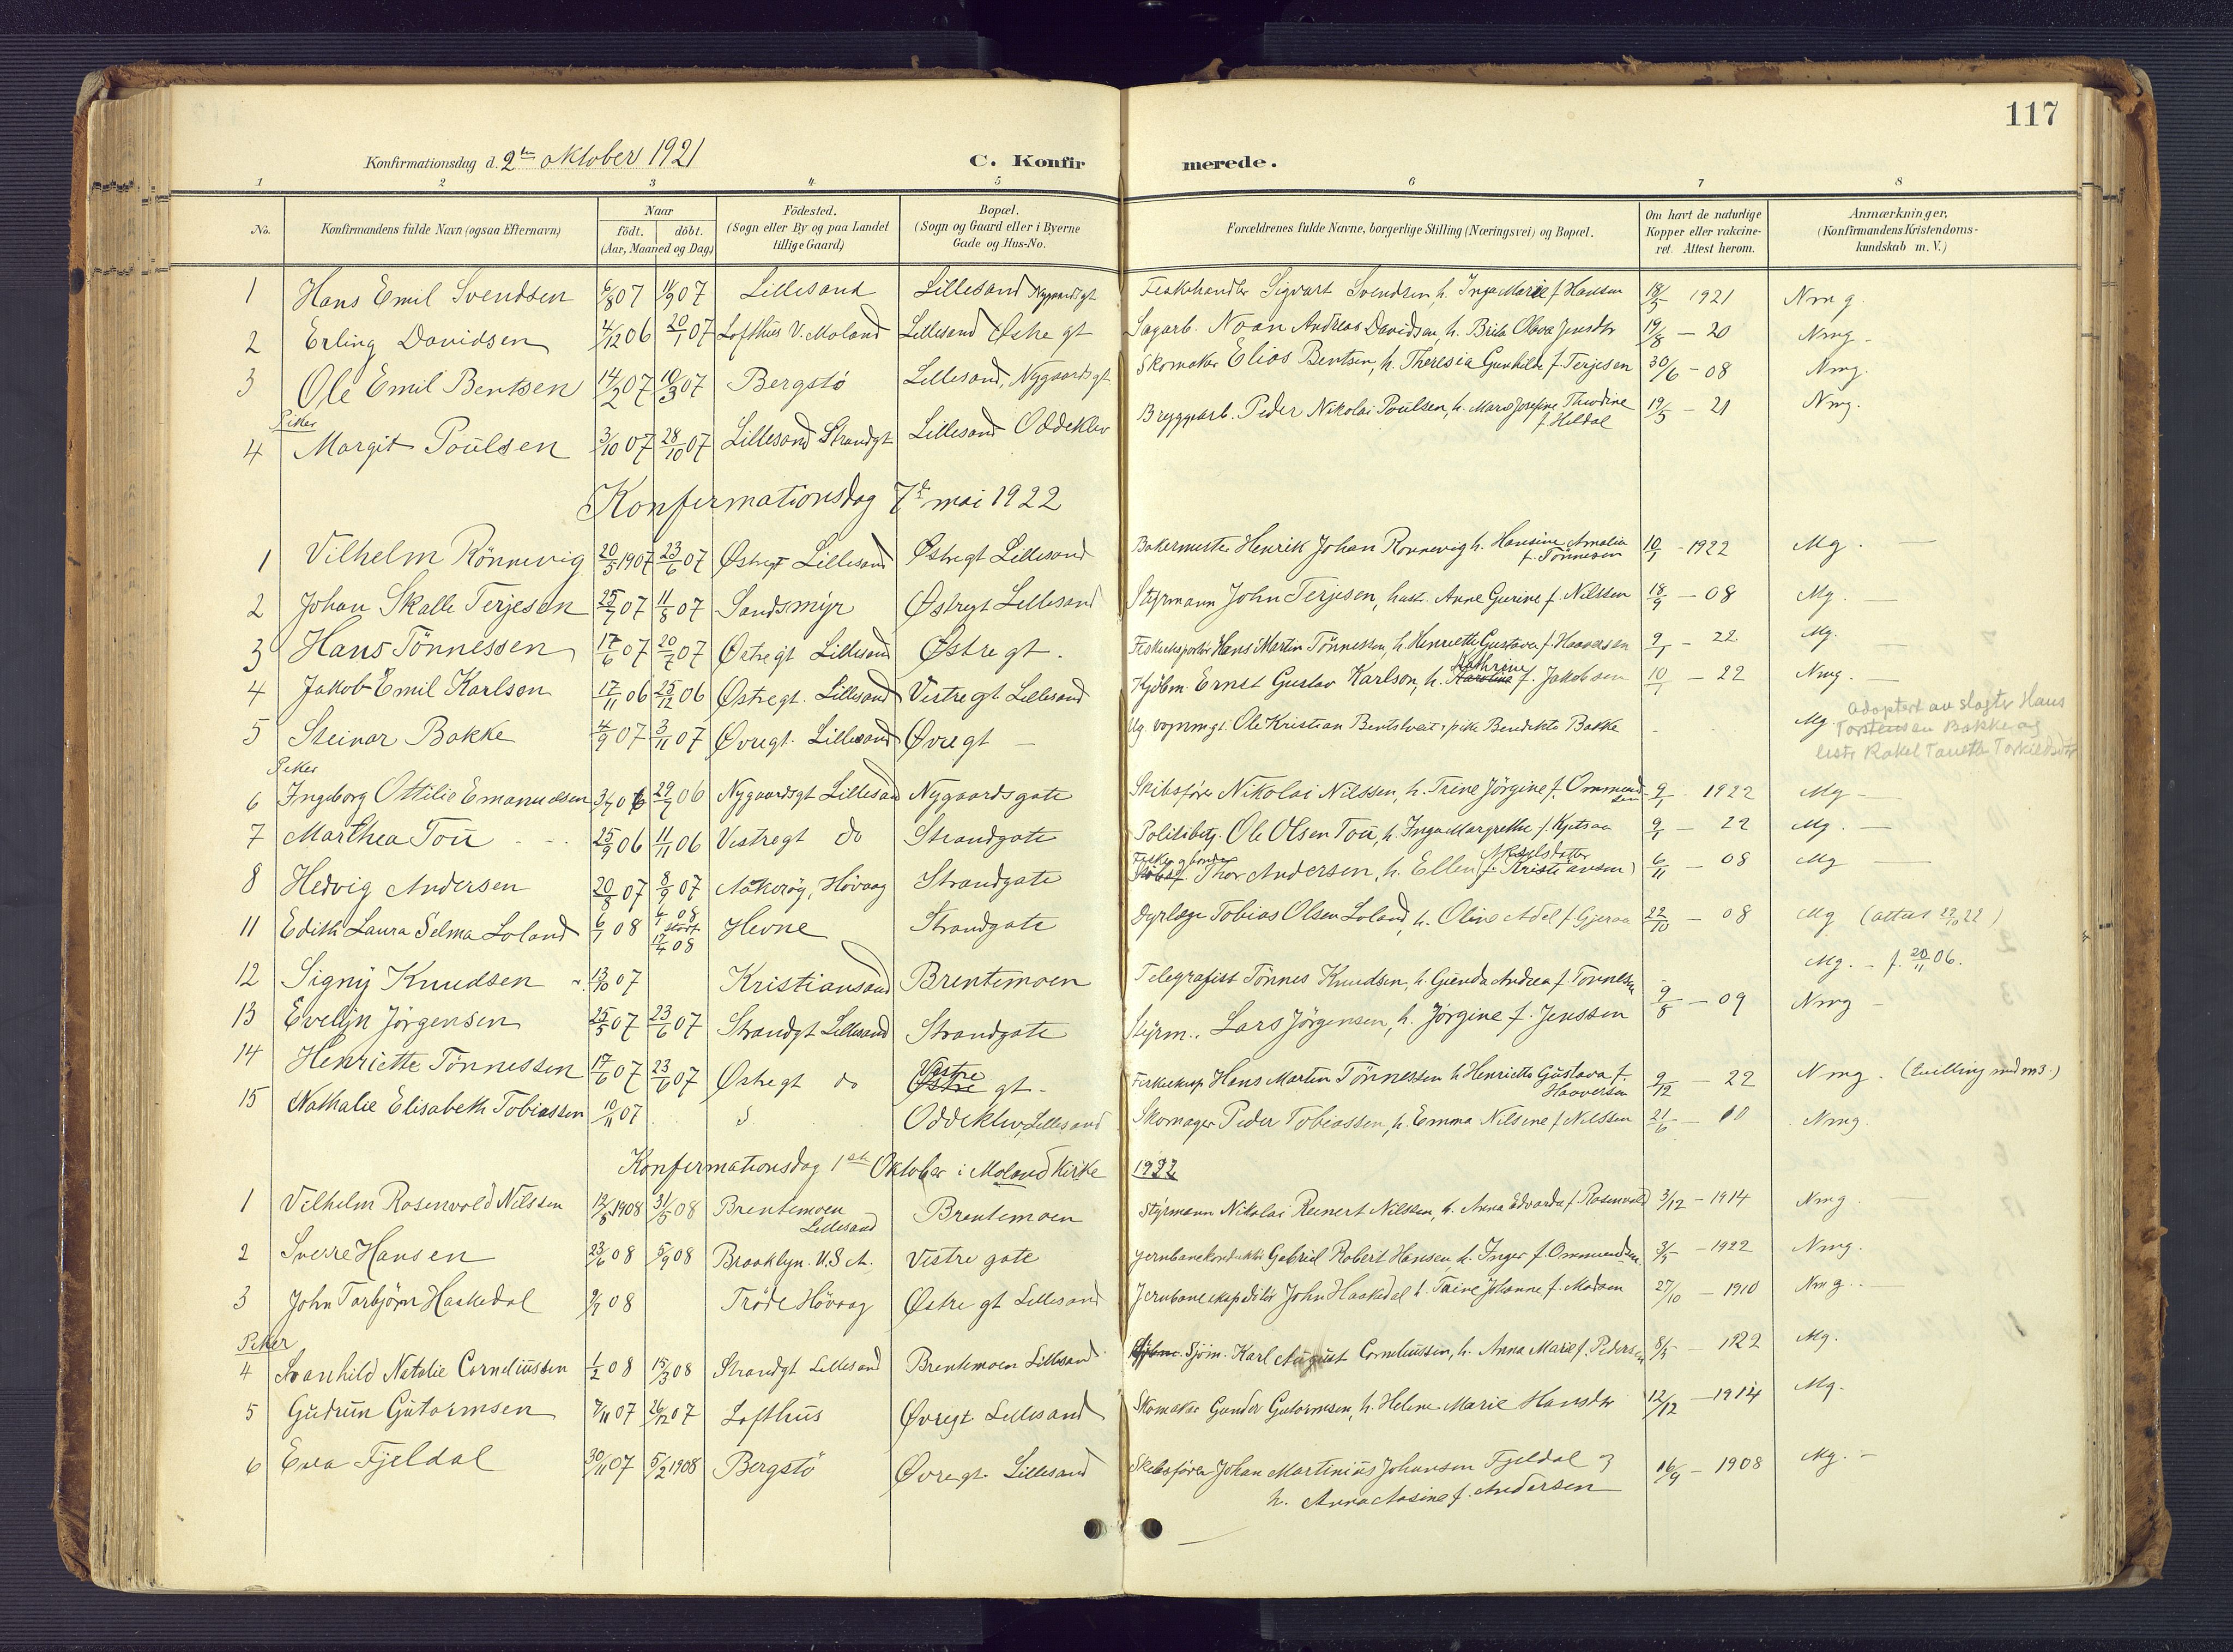 117
Konfirmationsdag d. 2den oktober 1921 C. Konfirmerede.
1 2 3 4 5 6 7 8
No. Konfirmandens fulde Navn (ogsaa Efternavn) Naar födt. döbt. (Aar, Maaned og Dag) Födested. (Sogn eller By og paa Landet tillige Gaard) Bopæl. (Sogn og Gaard eller i Byerne Gade og Hus-No. Forældrenes fulde Navne, borgerlige Stilling (Næringsvei) og Bopæl. Om havt de naturlige Kopper eller vakcineret. Attest herom. Anmærkninger, (Konfirmandens Kristendomskundskab m. V.)
1 Hans Emil Svendsen 6/8 07 1/9 07 Lillesand Lillesand Nygaardsgt Fiskehandler Sigvart Svendsen, h. Inga Marie f. Hansen 18/5 1921 Nmg.
2 Erling Davidsen 4/12 06 20/1 07 Lofthus V. Moland Lillesand Østre gt Sagarb. Noan Andreas Davidsen, h. Brita Olava Jensdtr 19/8 - 20 Nmg.
3 Ole Emil Bentsen 14/2 07 10/3 07 Bergstö Lillesand, Nygaardsgt. Skomaker Elias Bentsen, h. Theresia Gunhilde f. Terjesen 30/6 - 08 Nmg.
Piker
4 Margit Poulsen 3/10 07 28/10 07 Lillesand Strandgt Lillesand Oddeklev Bryggearb. Peder Nikolai Poulsen, h. Marie Josefine Thodine f. Heldal 19/5 - 21 Nmg.
Konfirmationsdag 7de mai 1922
1 Vilhelm Rönnevig 20/5 1907 23/6 07 Østregt Lillesand Østregt Lillesand Bakermester Henrik Johan Ronnevig h. Hansine Amalia f. Tönnesen 10/1 - 1922 Mg. —
2 Johan Skalle Terjesen 25/7 07 11/8 07 Sandsmyr Østregt Lillesand Styrmann John Terjesen, hust. Anne Gurine f. Nilssen 18/9 - 08 Mg. —
3 Hans Tönnessen 17/6 07 20/7 07 Østregt Lillesand Østre gt. Fiskeeksportör Hans Martin Tönnessen, h. Henriette Gustava f. Haaversen 9/1 - 22 Mg. —
4 Jakob Emil Karlsen 17/11 06 25/12 06 Østregt. Lillesand Vestre gt Lillesand Kjöbm. Ernst Gustav Karlson, h. Karolina Kathrine f. Jakobsen 10/1 - 22 Nmg. —
5 Steinar Bakke 4/9 07 3/11 07 Øvregt. Lillesand Øvregt — Ug. vognmgt. Ole Kristian Bentstveit, pike Bendikte Bakke Mg. adoptert av slagter Hans Torstensen Bakke og Rakel
Piker
6 Ingeborg Ottilie Emanuelsen 3/7 06 29/7 06 Nygaardsgt Lillesand Nygaardsgate Skibsfører Nikolai Nilssen, h. Trine Jörgine f. Ommundsen 9/1 - 1922 Mg —
7 Marthea Tou 25/9 06 11/11 06 Vestregt do Strandgate Politibetj. Ole Olsen Tou, h. Inga Margrethe f. Kjetsaa 9/1 - 22 Mg. —
8 Hedvig Andersen 20/8 07 8/9 07 Aakerøy, Hövaag Strandgate Fisker og bonde Thor Andersen, h. Ellen (f. Kristiansen) 6/11 - 08 Mg —
11 Edith Laura Selma Loland 6/1 08 12/4 08 Hevne Strandgate Dyrlæge Tobias Olsen Loland, h. Oline Adel f. Gjeraa 22/10 - 08 Mg (attest 29/10 22)
12 Signy Knudsen 13/10 07 Kristiansand Brentemoen Telegrafist Tönnes Knudsen, h. Gunda Andrea f. Tönnesen Mg. - f. 20/11 06.
13 Evelyn Jörgensen 25/5 07 23/6 07 Strandgt Lillesand Strandgate Styrm. Lars Jörgensen, h. Jörgine f. Jenssen 9/8 - 09 Nmg -
14 Henriette Tönnessen 17/6 07 23/6 07 Østregt do Østre Vestre gt. Fiskeeksp Hans Martin Tönnessen h. Henriette Gustava f. Haaversen 9/12 - 22 Nmg. (tvilling med nr 3.)
15 Nathalie Elisabeth Tobiassen 10/11 07 Oddeklev, Lillesand Skomager Peder Tobiassen, h. Emma Nilsine f. Nilssen 21/6 - 10 Nmg.
Konfirmationsdag 1ste Oktober i Moland Kirke 1922
1 Vilhelm Rosenvold Nilssen 12/5 1908 31/5 08 Brentemoen Lillesand Brentemoen Styrmann Nikolai Reinert Nilssen, h. Anna Edvarda f. Rosenvold 3/12 - 1914 Nmg. —
2 Sverre Hansen 23/6 08 5/9 08 Brooklyn. U.S A. Vestre gate Jernbanekonduktör Gabriel Robert Hansen, h. Inger f. Ommundsen. 3/5 - 1922 Nmg.
3 John Torbjörn Haakedal 9/7 08 Tröde Hövaag Østre gt Lillesand Jernbaneekspeditör John Haakedal h. Trine Johanne f. Madsen 27/10 - 1910 Nmg.
Piker
4 Svanhild Natalie Corneliussen 1/2 08 15/3 08 Strandgt Lillesand Brentemoen Lillesand Sjöm. Karl August Corneliussen, h. Anna Marie f. Pedersen 8/5 - 1922 Mg.
5 Gudrun Gutormsen 7/11 07 26/12 07 Lofthus Øvregt Lillesand Skomaker Gunder Gutormsen, h. Helene Marie Hansdtr 12/12 - 1914 Mg.
6 Eva Fjeldal 30/11 07 5/2 1908 Bergstö Øvregt Lillesand Skibsförer Johan Martinius Johansen Fjeldal og h. Anna Aasine f. Andersen 16/9 - 1908 Mg. -